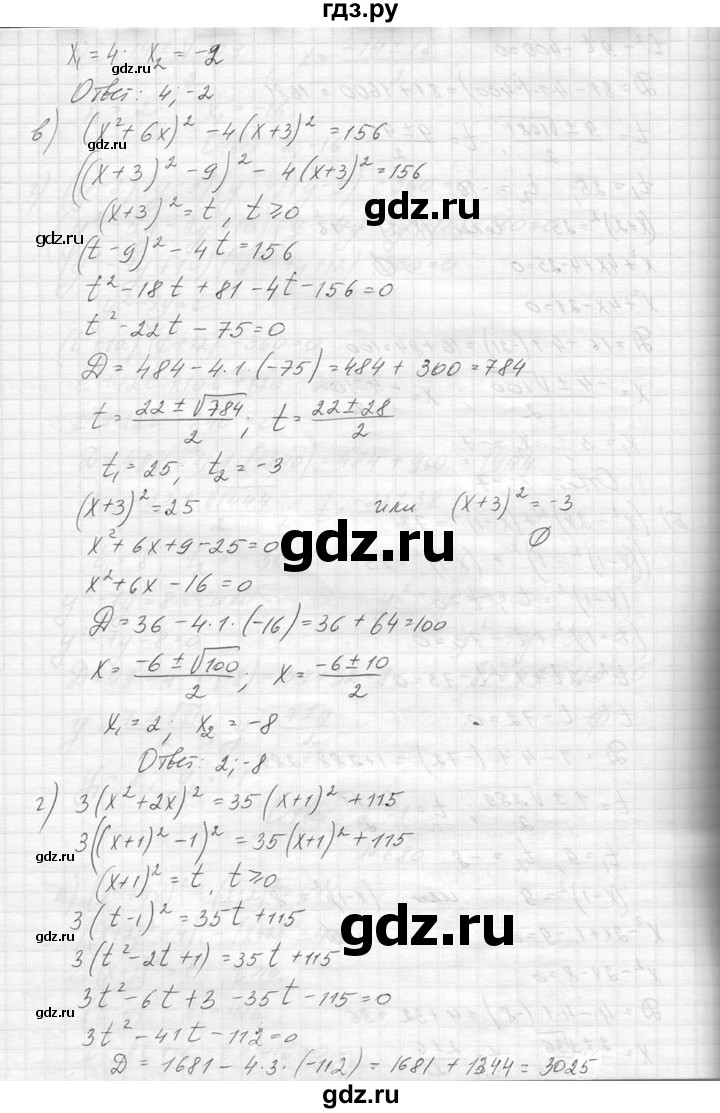 гдз.ру
x₁ = 4; x₂ = -2
gdz.ru
Ответ: 4; -2
gdz.ru
в) (x² + 6x)² - 4(x+3)² = 156
gdz.ru
((x+3)² - 9)² - 4(x+3)² = 156
(x+3)² = t, t ≥ 0
gdz.ru
gdz.ru
(t-9)² - 4t = 156
t² - 18t + 81 - 4t - 156 = 0
t² - 22t - 75 = 0
D = 484 - 4·1·(-75) = 484 + 300 = 784
t = (22 ± √784)/2; t = (22 ± 28)/2
gdz.ru
gdz.ru
t₁ = 25; t₂ = -3
(x+3)² = 25 или (x+3)² = -3
gdz.ru
x² + 6x + 9 - 25 = 0 ∅
x² + 6x - 16 = 0
D = 36 - 4·1·(-16) = 36 + 64 = 100
gdz.ru
x = (-6 ± √100)/2; x = (-6 ± 10)/2
gdz.ru
x₁ = 2; x₂ = -8
Ответ: 2; -8
г) 3(x² + 2x)² = 35(x+1)² + 115
3((x+1)² - 1)² = 35(x+1)² + 115
gdz.ru
(x+1)² = t, t ≥ 0
3(t-1)² = 35t + 115
gdz.ru
gdz.ru
gdz.ru
3(t² - 2t + 1) = 35t + 115
3t² - 6t + 3 - 35t - 115 = 0
3t² - 41t - 112 = 0
D = 1681 - 4·3·(-112) = 1681 + 1344 = 3025
gdz.ru
gdz.ru
gdz.ru